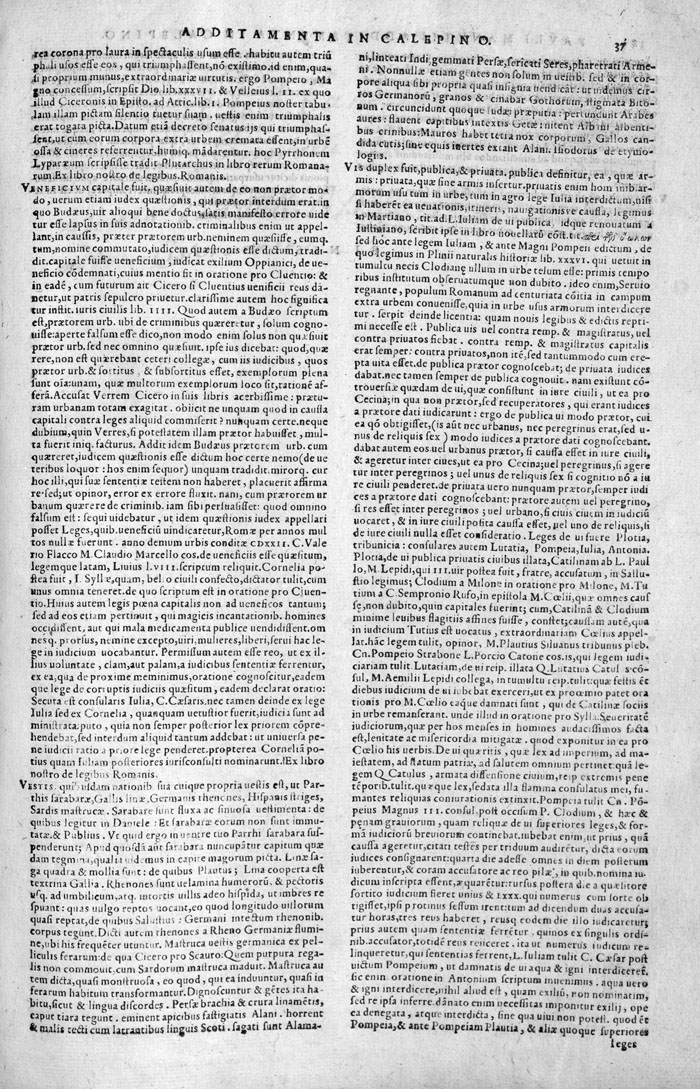 ADDITAMENTA IN CALEPINO.
37
rea corona pro laura in spectaculis usum esse. habitu autem triū
phali usos esse eos, qui triumphassent, nō existimo. id enim, qua-
si proprium munus, extraordinariæ uirtutis. ergo Pompeio, Ma
gno concessum, scripsit Dio. lib. xxxvii. & Velleius l. 11. ex quo
illud Ciceronis in Episto. ad Attic. lib. 1. Pompeius noster tabu
lam illam pictam silentio tuetur suam. uestis enim triumphalis
erat togata picta. Datum etiā decreto senatus ijs qui triumphas-
sent, ut cum eorum corpora extra urbem cremata essent, in urbē
ossa & cineres referrentur, humiq. mādarentur. hoc Pyrrhonem
Lyparæum scripsisse tradit Plutarchus in libro rerum Romana-
rum. Ex libro nostro de legibus. Romanis.
VENEFICIVM capitale fuit. quæsiuit autem de eo non prætor mo-
do, uerum etiam iudex quæstionis, qui prætor interdum erat. in
quo Budæus, uir alioqui bene doctus, satis manifesto errore uide
tur esse lapsus in suis adnotationib. criminalibus enim ut appel-
lant, in caussis, præter prætorem urb. neminem quæsisse, eumq.
tum, nomine commutato, iudicem quæstionis esse dictum, tradi-
dit. capitale fuisse ueneficium, iudicat exilium Oppianici, de ue-
neficio cōdemnati, cuius mentio fit in oratione pro Cluentio: &
in eadē, cum futurum ait Cicero si Cluentius uenificii reus dā-
netur, ut patris sepulcro priuetur. clarissime autem hoc significa
tur instit. iuris ciuilis lib. IIII. Quod autem a Budæo scriptum
est, prætorem urb. ubi de criminibus quæreretur, solum cogno-
uisse: aperte falsum esse dico, non modo enim solus non quæsiuit
prætor urb. sed nec omnino quæsiuit. ipse ius dicebat: quod, quæ
rere, non est quærebant ceteri collegæ, cum iis iudicibus, quos
prætor urb. & sortitus & subsortitus esset, exemplorum plena
sunt oīa: unam, quæ multorum exemplorum loco sit, rationē af-
ferā. Accusat Verrem Cicero in suis libris acerbissime: prætu-
ram urbanam totam exagitat. obiicit ne unquam quod in caussa
capitali contra leges aliquid commiserit? nunquam certe. neque
dubium, quin Verres, si potestatem illam prætor habuisset, mul-
ta fuerit iniq. facturus. Adde idem Budæus prætorem urb. cum
quæreret, iudicem quæstionis esse dictum hoc certe nemo (de ue
teribus loquor: hos enim sequor) unquam tradidit. mirorq. cur
hoc illi, qui suæ sententiæ testem non haberet, placuerit affirma
re. sed, ut opinor, error ex errore fluxit. nam, cum prætorem ur
banum quærere de criminib. iam sibi persuasisset: quod omnino
falsum est: sequi uidebatur, ut idem quæstionis iudex appellari
posset Leges, quib. ueneficiū uindicaretur, Romæ per annos mul
tos nullæ fuerunt. anno demum urbis conditæ CDXXII. C. Vale
rio Flacco M. Claudio Marcello cos. de ueneficiis esse quæsitum,
legemque latam, Liuius l. VIII. scriptum reliquit. Cornelia po-
stea fuit, I Syllæ, quam, bello ciuili confecto, dictator tulit, cum
unus omnia teneret. de quo scriptum est in oratione pro Cluen-
tio. Huius autem legis pœna capitalis non ad ueneficos tantum;
sed ad eos etiam pertinuit, qui magicis incantationib. homines
occidissent, aut qui mala medicamenta publice uendidissent. om
nesq. prorsus, nemine excepto, uiri, mulieres, liberi, serui hac le-
ge in iudicium uocabantur. Permissum autem esse reo, ut ex il-
lius uoluntate, clam, aut palam, a iudicibus sententiæ ferrentur,
ex ea, qua de proxime meminimus, oratione cognoscitur, eadem
que lege de corruptis iudiciis quæsitum, eadem declarat oratio:
Secuta est consularis Iulia, C. Cæsaris. nec tamen deinde ex lege
Iulia sed ex Cornelia, quanquam uetustior fuerit, iudicia sunt ad
ministrata. puto, quia non semper posterior lex priorem cōpre-
hendebat, sed interdum aliquid tantum addebat: ut uniuersa pe-
ne iudicii ratio a priore lege penderet. propterea Cornelia pō-
tius quam Iuliam posteriores iurisconsulti nominarunt. Ex libro
nostro de legibus Romanis.
VESTIS. quibusdam nationib sua cuique propria uestis est, ut Par-
this sarabaræ, Gallis linæ, Germanis rhenones, Hispanis striges,
Sardis mastrucæ. Sarabaræ sunt fluxa ac sinuosa uestimenta: de
quibus legitur in Daniele: Et sarabaræ eorum non sunt immu-
tatæ. & Publius. Vt quid ergo in uentre tuo Parthi sarabara sus-
penderunt; Apud quosdā aūt sarabaræ nuncupātur capitum quæ
dam tegmina, qualia uidemus in capite magorum picta. Linæ sa-
ga quadra & mollia sunt: de quibus Plautus; Lina cooperta est
textrina Gallia. Rhenones sunt uelamina humerorū. & pectoris
usq. ad umbilicum, atq. intortis uillis adeo hispida, ut imbres re
spuant: quas uulgo reptos uocant, eo quod longitudo uillorum
quasi reptat. de quibus Salustius: Germani intectum rhenonib.
corpus tegunt. Dicti autem rhenones a Rheno Germaniæ flumi-
ne, ubi his frequēter utuntur. Mastruca uestis germanica ex pel-
liculis ferarum: de qua Cicero pro Scauro: Quem purpura rega-
lis non commouit, cum Sardorum mastruca maduit. Mastruca au
tem dicta, quasi monstruosa, eo quod, qui ea induuntur, quasi in
ferarum habitum transformantur. Dignoscuntur & gētes ita ha-
bitu, sicut & lingua discordes. Persæ brachia & crura linamētis,
caput tiara tegunt. eminent apicibus fastigiatis Alani. horrent
& malis tecti cum latrantibus linguis Scoti. sagati sunt Alama-
ni, linteati Indi, gemmati Persæ, sericati Seres, pharetrati Arme-
ni. Nonnullæ etiam gentes non solum in uestib. sed & in cor-
pore aliqua sibi propria quasi insignia uendicāt: ut uidemus cir-
ros Germanorū, granos & cinabar Gothorum, stigmata Bito-
num. circuncidunt quoque Iudæi præputia: pertundunt Arabes
aures: flauent capitibus intextis Getæ: nitent Albani albenti-
bus crinibus: Mauros habet tetra nox corporum, Gallos can-
dida cutis; sine equis inertes extant Alani. Isiodorus de etymo-
logiis.
VIS duplex fuit, publica, & priuata. publica definitur, ea, quæ ar-
mis: priuata, quæ sine armis infertur. priuatis enim hominib. ar-
morum usu tum in urbe, tum in agro lege Iulia interdictum, nisi
si haberēt ea uenationis, itineris, nauigationisve caussa, legimus
in Martiano, tit. ad L. Iuliam de ui publica. idque renouatum a
Iustiniano, scribit ipse in libro nouellarū cōstit.
sed hoc ante legem Iuliam, & ante Magni Pompeii edictum, de
quo legimus in Plinii naturalis historiæ lib. xxxvi. qui uetuit in
tumultu necis Clodianę ullum in urbe telum esse: primis tempo
ribus institutum obseruatumque non dubito. ideo enim, Seruio
regnante, populum Romanum ad centuriata comitia in campum
extra urbem conuenisse, quia in urbe usus armorum interdicere
tur. serpit deinde licentia: quam nouis legibus & edictis repri-
mi necesse est. Publica uis uel contra remp. & magistratus, uel
contra priuatos fiebat. contra remp. & magistratus capitalis
erat semper: contra priuatos, non itē, sed tantummodo cum ere-
pta uita esset. de publica prætor cognoscebat; de priuata iudices
dabat. nec tamen semper de publica cognouit. nam existunt cō-
trouersiæ quædam de ui, quæ consistunt in iure ciuili, ut ea pro
Cecina; in qua non prætor, sed recuperatores, qui erant iudices
a prætore dati iudicarunt: ergo de publica ui modo prætor, cui
ea qō obtigisset, (is aūt nec urbanus, nec peregrinus erat, sed u-
nus de reliquis sex) modo iudices a prætore dati cognoscebant.
dabat autem eos uel urbanus prætor, si caussa esset in iure ciuili,
& ageretur inter ciues, ut ea pro Cecina; uel peregrinus, si agere
tur inter peregrinos; uel unus de reliquis sex si cognitio nō a iu
re ciuili penderet. de priuata uero nunquam prætor, semper iudi
ces a prætore dati cognoscebant: prætore autem uel peregrino,
si res esset inter peregrinos; uel urbano, si ciuis ciuem in iudiciū
uocaret, & in iure ciuili posita caussa esset, uel uno de reliquis, si
de iure ciuili nulla esset consideratio. Leges de ui fuere Plotia,
tribunicia: consulares autem Lutatia, Pompeia, Iulia, Antonia.
Plotia, de ui publica priuatis ciuibus illata, Catilinam ab L. Paul
lo, M. Lepidi, qui III. uir postea fuit, fratre, accusatum, in Sallu-
stio legimus; Clodium a Milone in oratione pro Milone, M. Tu
tium a C. Sempronio Rufo, in epistola M. Cœlii, quæ omnes cauf
sę, non dubito, quin capitales fuerint; cum, Catilinā & Clodium
minime leuibus flagitiis affines fuisse, constet; caussam autē, qua
in iudicium Tutius est uocatus, extraordinariam Cœlius appel-
lat. hāc legem tulit, opinor, M. Plautius Siluanus tribunus pleb.
Cn. Pompeio Strabone L. Porcio Catone cos. is, qui legem iudi-
ciariam tulit. Lutatiam, de ui reip. illata Q. Lutatius Catul° cō-
sul, M. Aemilii Lepidi collega, in tumultu reip. tulit: quæ festis ēt
diebus iudicium de ui iubebat exerceri, ut ex proœmio patet ora
tionis pro M. Cœlio eaque damnati sunt, qui de Catilinæ sociis
in urbe remanserant. unde illud in oratione pro Sylla. Seueritatē
iudiciorum, quæ per hos menses in homines audacissimos facta
est, lenitate ac misericordia mitigate. quod exponitur in ea pro
Cœlio his uerbis. De ui quæritis, quæ lex ad imperium, ad ma-
iestatem, ad statum patriæ, ad salutem omnium pertinet: quā le-
gem Q. Catulus, armata dissensione ciuium, reip. extremis pene
tēporib. tulit. quæque lex, sedata illa flamma consulatus mei, fu-
mantes reliquias coniurationis extinxit. Pompeia tulit Cn. Pō-
peius Magnus III. consul. post occisum P. Clodium, & hæc &
penam grauiorem, quam reliquæ de ui superiores leges, & for-
mā iudiciorū breuiorum continebat. iubebat enim, ut prius, quā
caussa ageretur, citati testes per triduum audirētur, dicta eorum
iudices consignarent: quarta die adesse omnes in diem posterum
iuberentur, & coram accusatore ac reo pilæ, in quib. nomina iu-
dicum inscripta essent, æquarētur: rursus postera die a quæsitore
sortitio iudicum fieret unius & lxxx. qui numerus cum sorte ob
tigisset, ipsi protinus sessum irent: tum ad dicendum duas accusa-
tur horas, tres reus haberet, reusq. eodem die illo iudicaretur;
prius autem quam sententiæ ferrētur, quinos ex singulis ordi-
nib. accusator, totidē reus reiiceret. ita ut numerus iudicum re-
linqueretur, qui sententias ferrent, L. Iuliam tulit C. Cæsar post
uictum Pompeium, ut damnatis de ui aqua & igni interdiceret̄.
sic enim. oratione in Antonium scriptum inuenimus. aqua uero
& igni interdicere, nihil aliud est, quam exiliū, non nominatim,
sed re ipsa inferre. dānato enim necessitas imponitur exilij, ope
ea denegata, atque interdicta, sine qua uiui non potest. quod ēt
Pompeia, & ante Pompeiam Plautia, & aliæ quoque superiores
leges